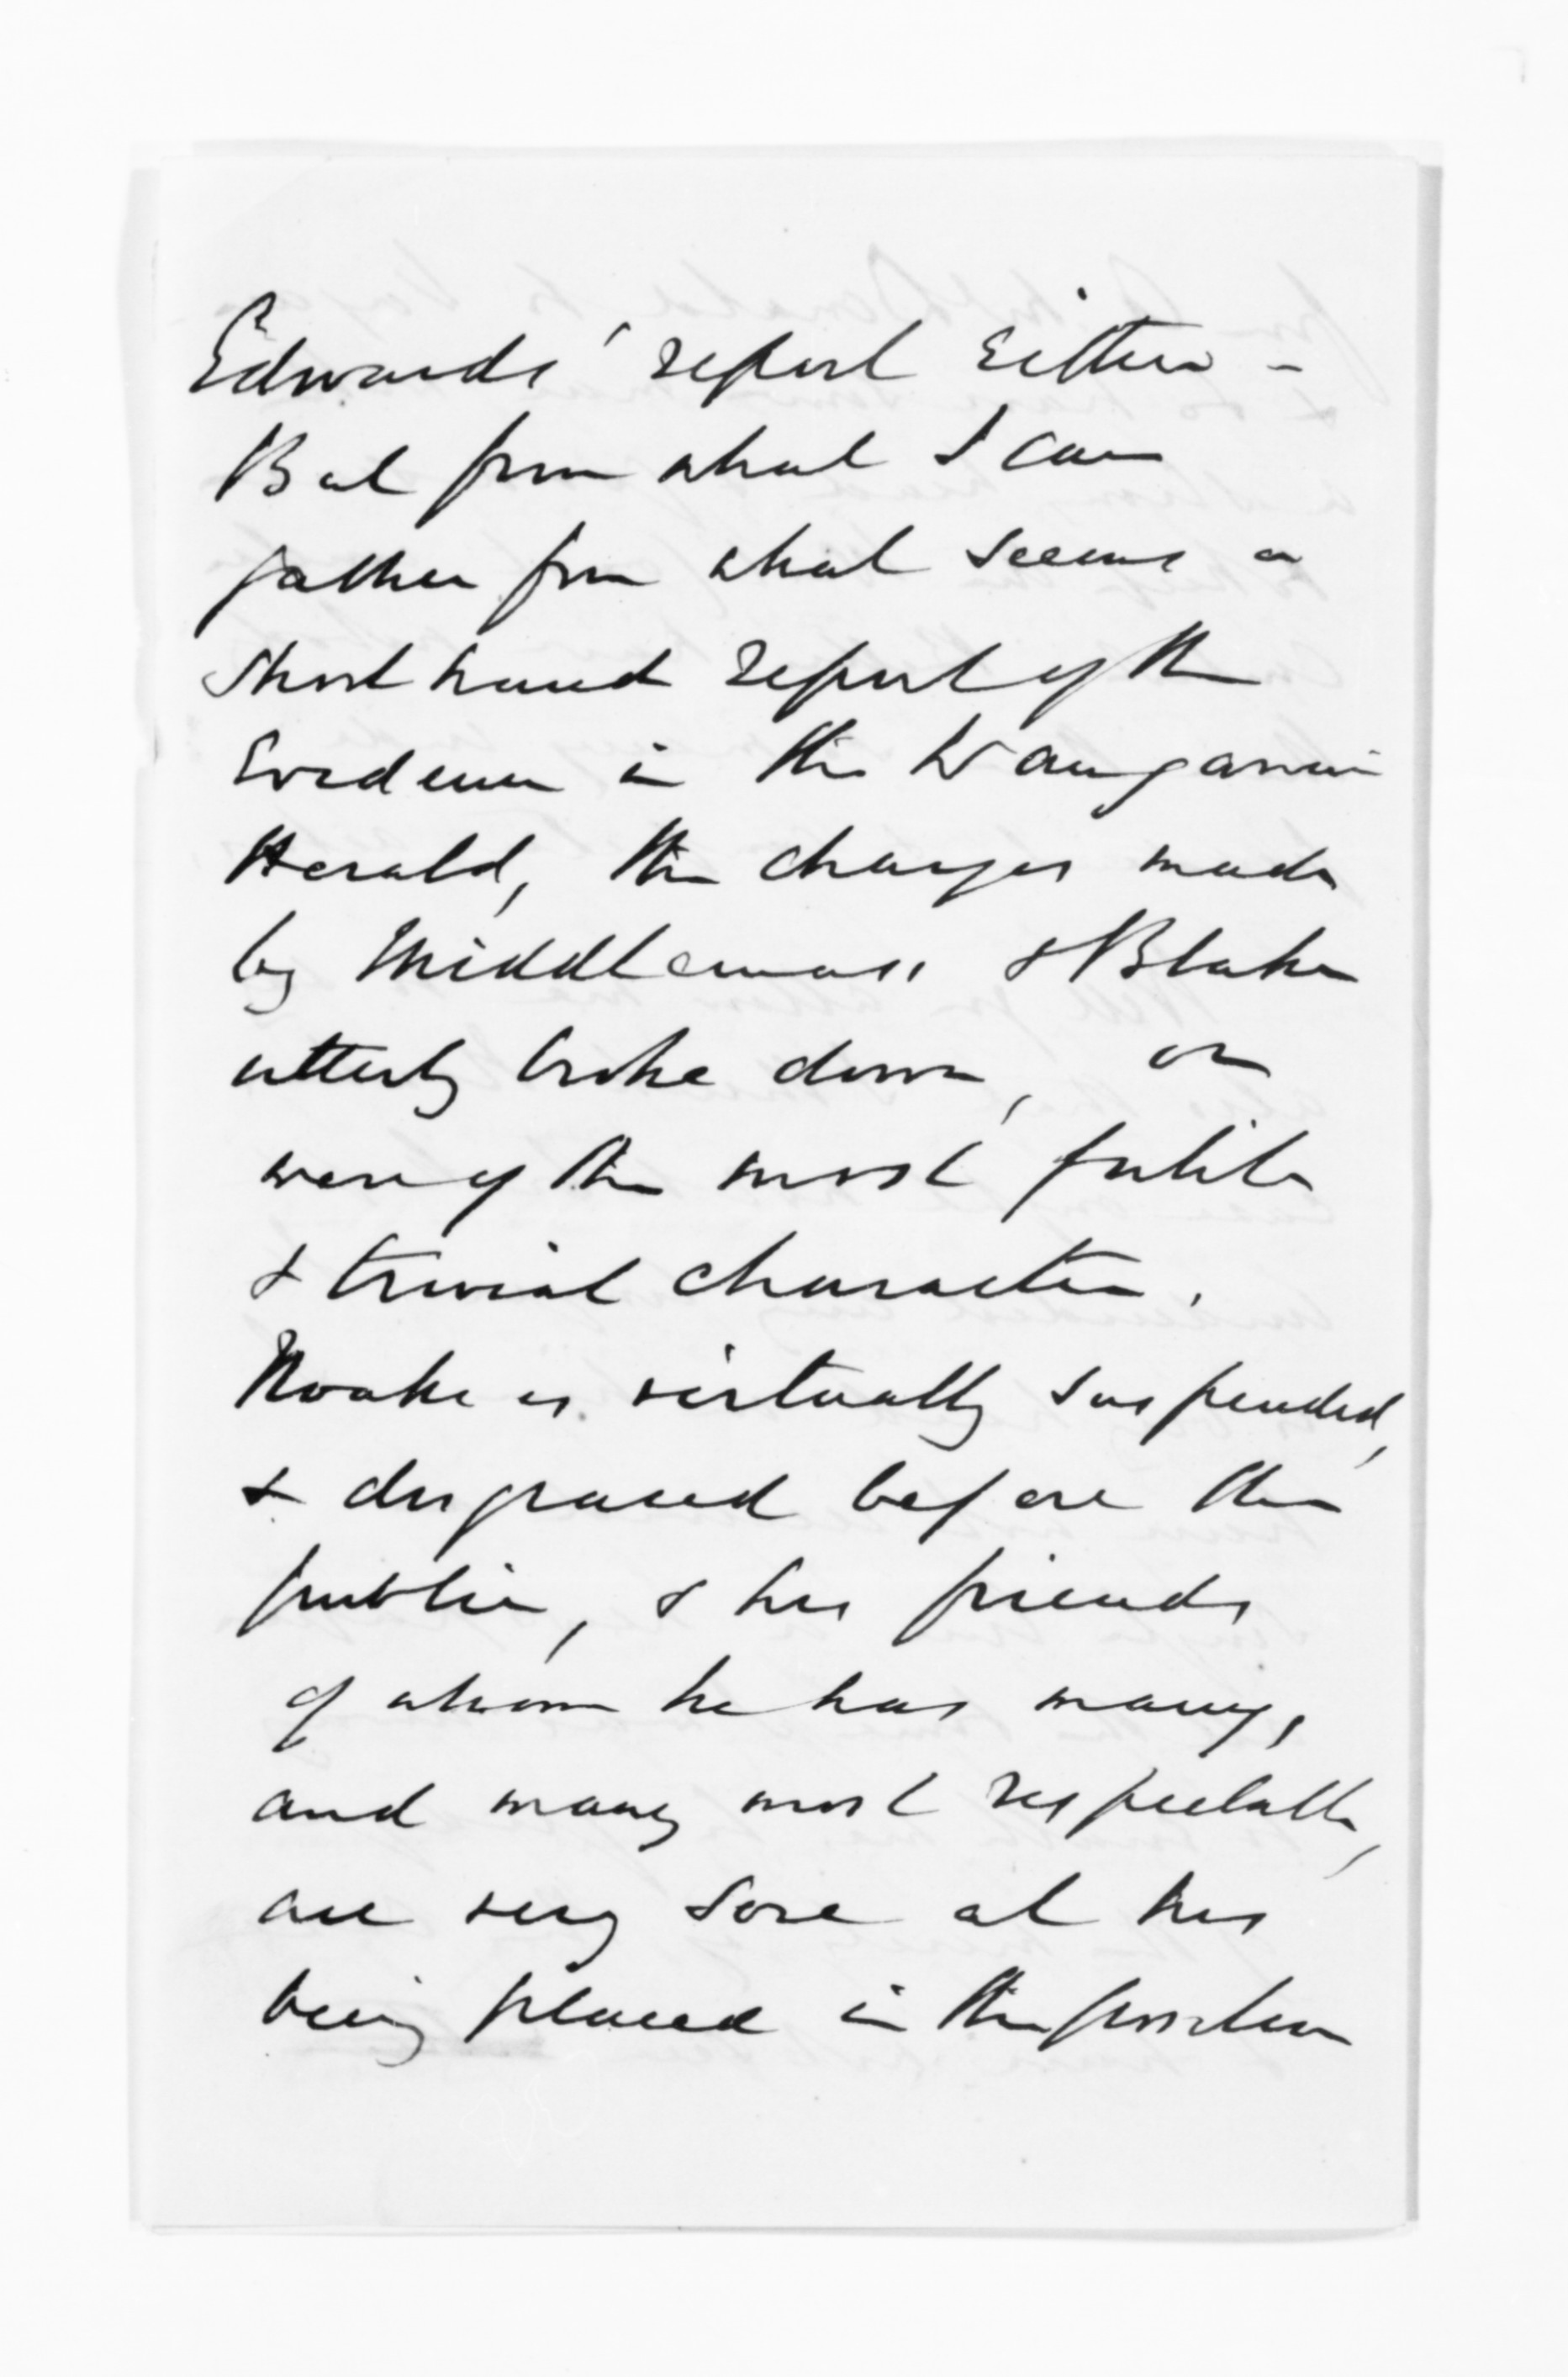 Edwards' report either -
But from what I can
gather from what seems a
short hand report of the
Evidence in the Wanganui
Herald, the charges made
by Middlemass & Blake
utterly broke down, or
were of the most futile
& trivial character.
Noake is virtually suspended,
& disgraced before the
public, & his friends
of whom he has many,
and many most respectable,
are very sore at his
being placed in the position